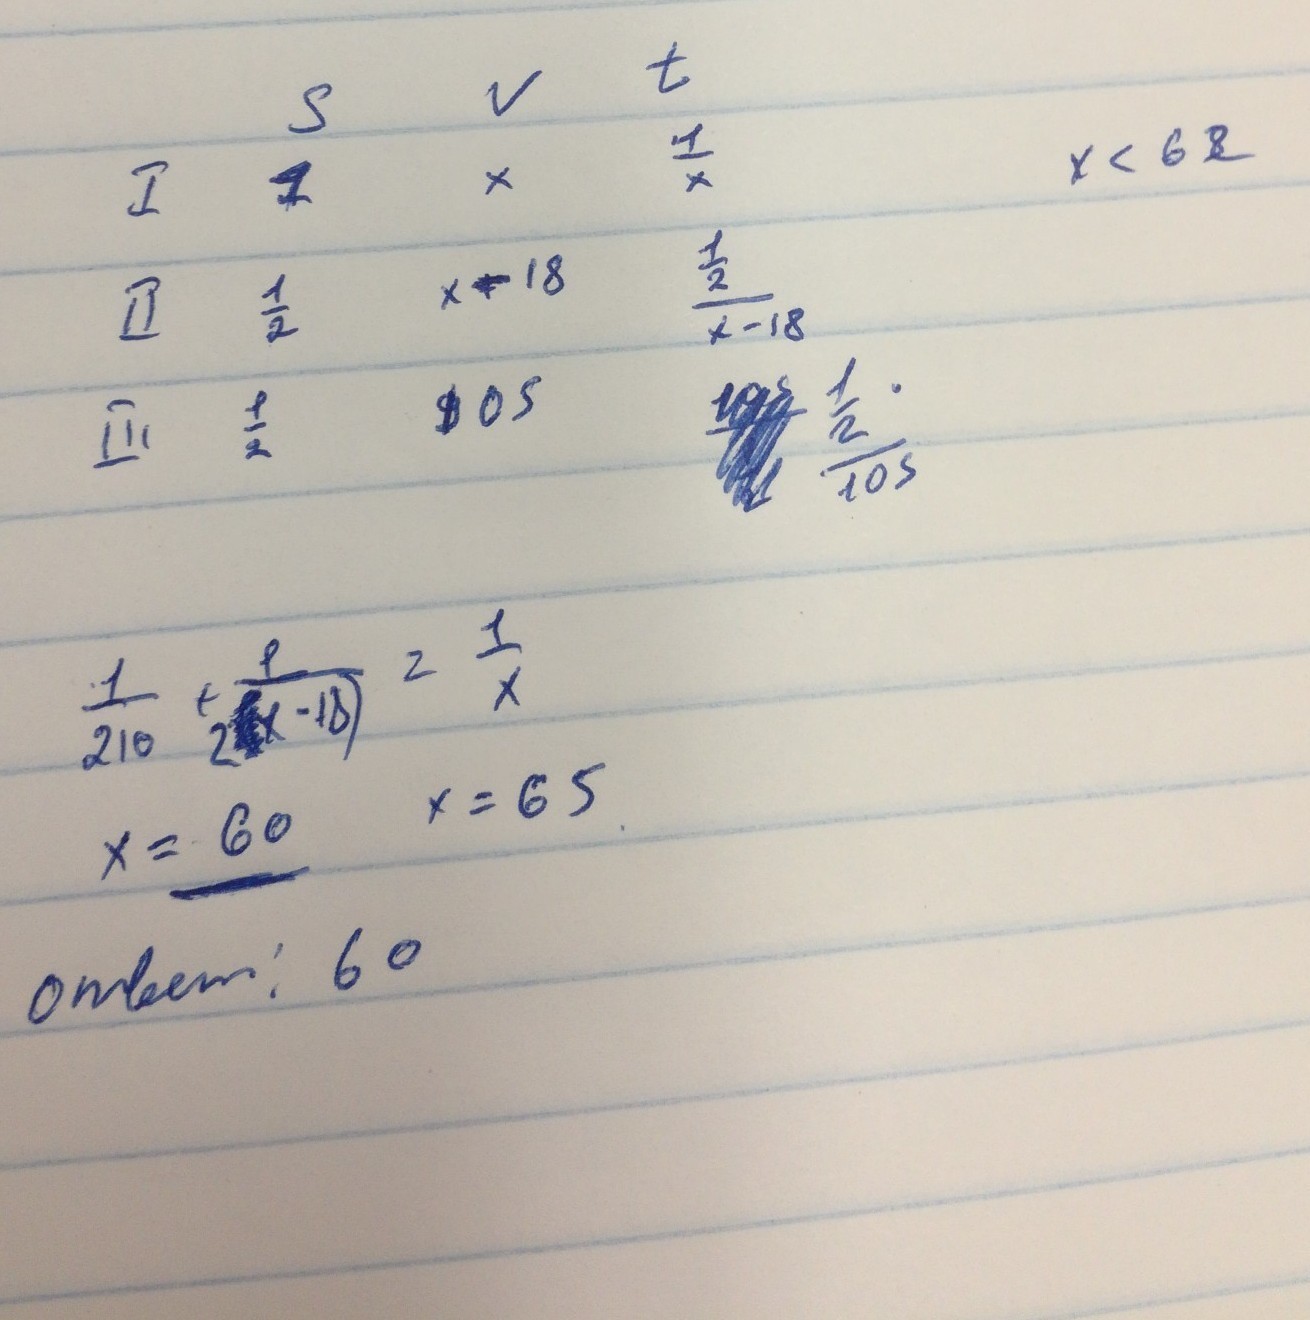 S V t
I 1 x 1/x x < 62
II 1/2 x - 18 1/2/x-18
III 1/2 105 1/2/105
1/210 + 1/2(x-18) = 1/x
x = 60 x = 65
Ответ: 60